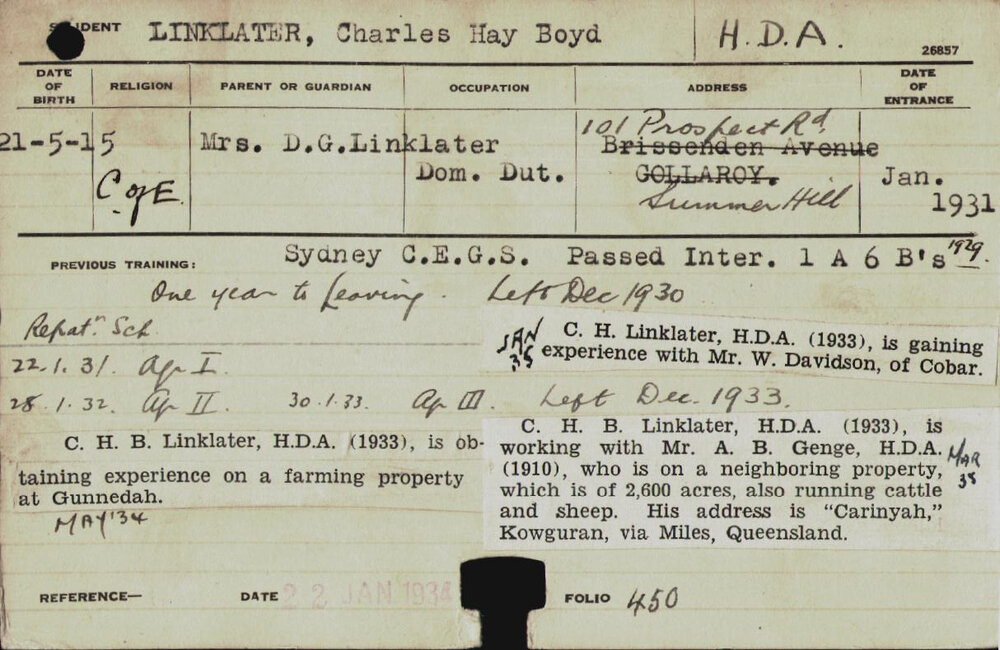 STUDENT LINKLATER, Charles Hay Boyd H.D.A. 26857
DATE OF BIRTH RELIGION PARENT OR GUARDIAN OCCUPATION ADDRESS DATE OF ENTRANCE
101 Prospect Rd.
21-5-15 Mrs. D.G.Linklater Brissenden Avenue
Dom. Dut. COLLAROY. Jan.
C of E Summer Hill 1931
PREVIOUS TRAINING: Sydney C.E.G.S. Passed Inter. 1 A 6 B's 1929.
One year to Leaving. Left Dec 1930
Repat'n Sch
JAN 35 C. H. Linklater, H.D.A. (1933), is gaining
experience with Mr. W. Davidson, of Cobar.
22.1.31. Ag I.
28.1.32. Ag II. 30.1.33. Ag III. Left Dec. 1933.
C. H. B. Linklater, H.D.A. (1933), is ob-
taining experience on a farming property
at Gunnedah.
MAY '34
C. H. B. Linklater, H.D.A. (1933), is
working with Mr. A. B. Genge, H.D.A.
(1910), who is on a neighboring property,
which is of 2,600 acres, also running cattle
and sheep. His address is "Carinyah,"
Kowguran, via Miles, Queensland.
MAR 38
REFERENCE— DATE 22 JAN 1934 FOLIO 450